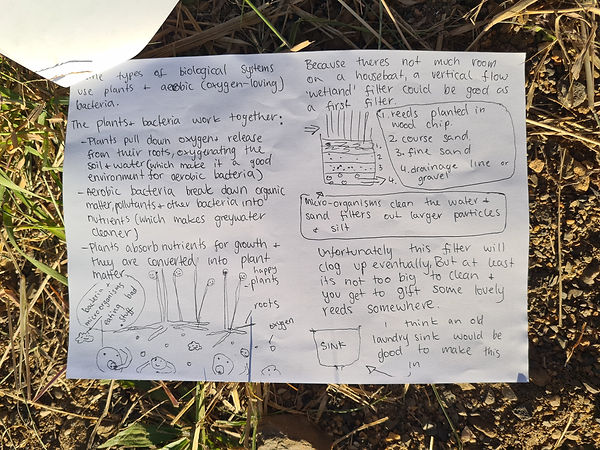 types of biological systems
use plants + aerobic (oxygen-loving)
bacteria.
The plants+ bacteria work together:
- Plants pull down oxygen + release
from their roots, oxygenating the
soil + water (which make it a good
environment for aerobic bacteria)
- Aerobic bacteria break down organic
matter, pollutants + other bacteria into
nutrients (which makes greywater
cleaner)
- Plants absorb nutrients for growth +
they are converted into plant
matter
happy
plants
bacteria +
microorganisms
eating bad
stuff
roots
oxygen
Because theres not much room
on a houseboat, a vertical flow
'wetland' filter could be good as
a first filter.
1. reeds planted in
wood chip.
2. course sand
3. fine sand
4. drainage line or
gravel
1.
2.
3
4.
Micro-organisms clean the water +
sand filters out larger particles
+ silt
Unfortunately this filter will
clog up eventually. But at least
its not too big to clean +
you get to gift some lovely
reeds somewhere.
SINK
I think an old
laundry sink would be
good to make this
in